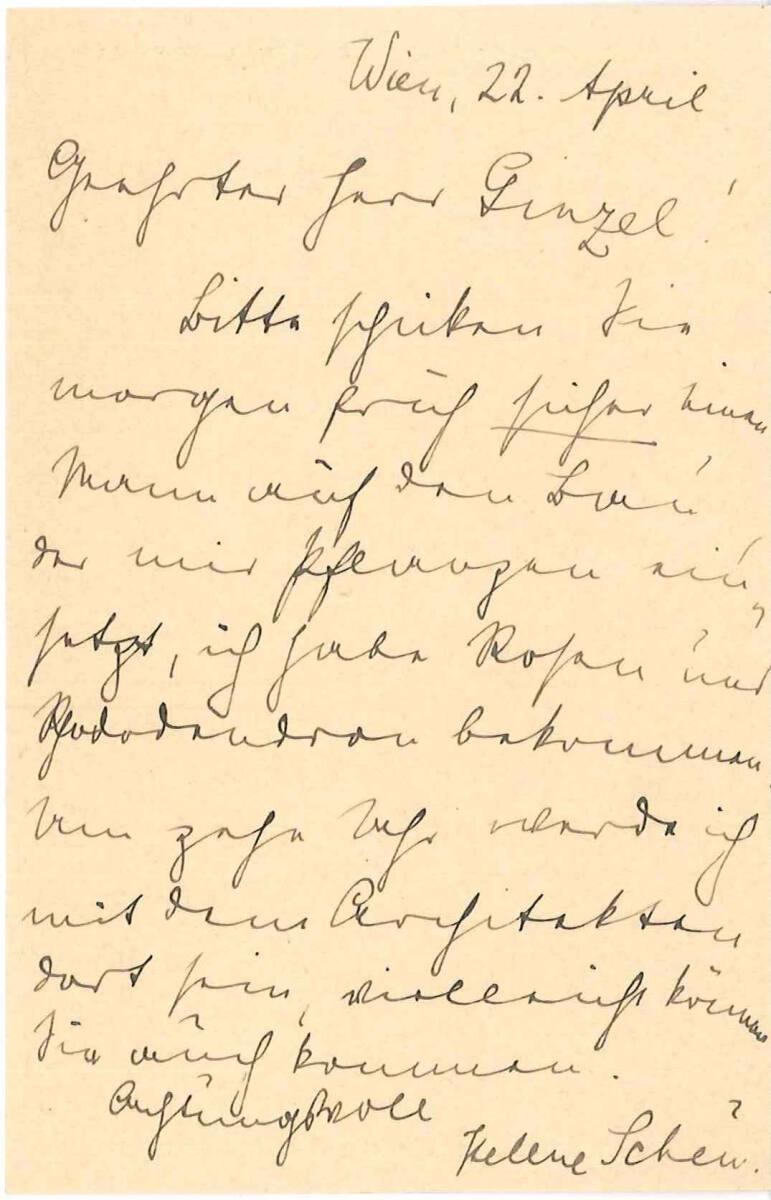 Wien, 22. April
Geehrter Herr Ginzel!
Bitte schicken Sie
morgen früh sicher einen
Mann auf den Bau,
der mir Pflanzen ein-
setzt, ich habe Rosen und
Rhododendron bekommen.
Um zehn Uhr werde ich
mit dem Architekten
dort sein, vielleicht können
Sie auch kommen.
Achtungsvoll
Helene